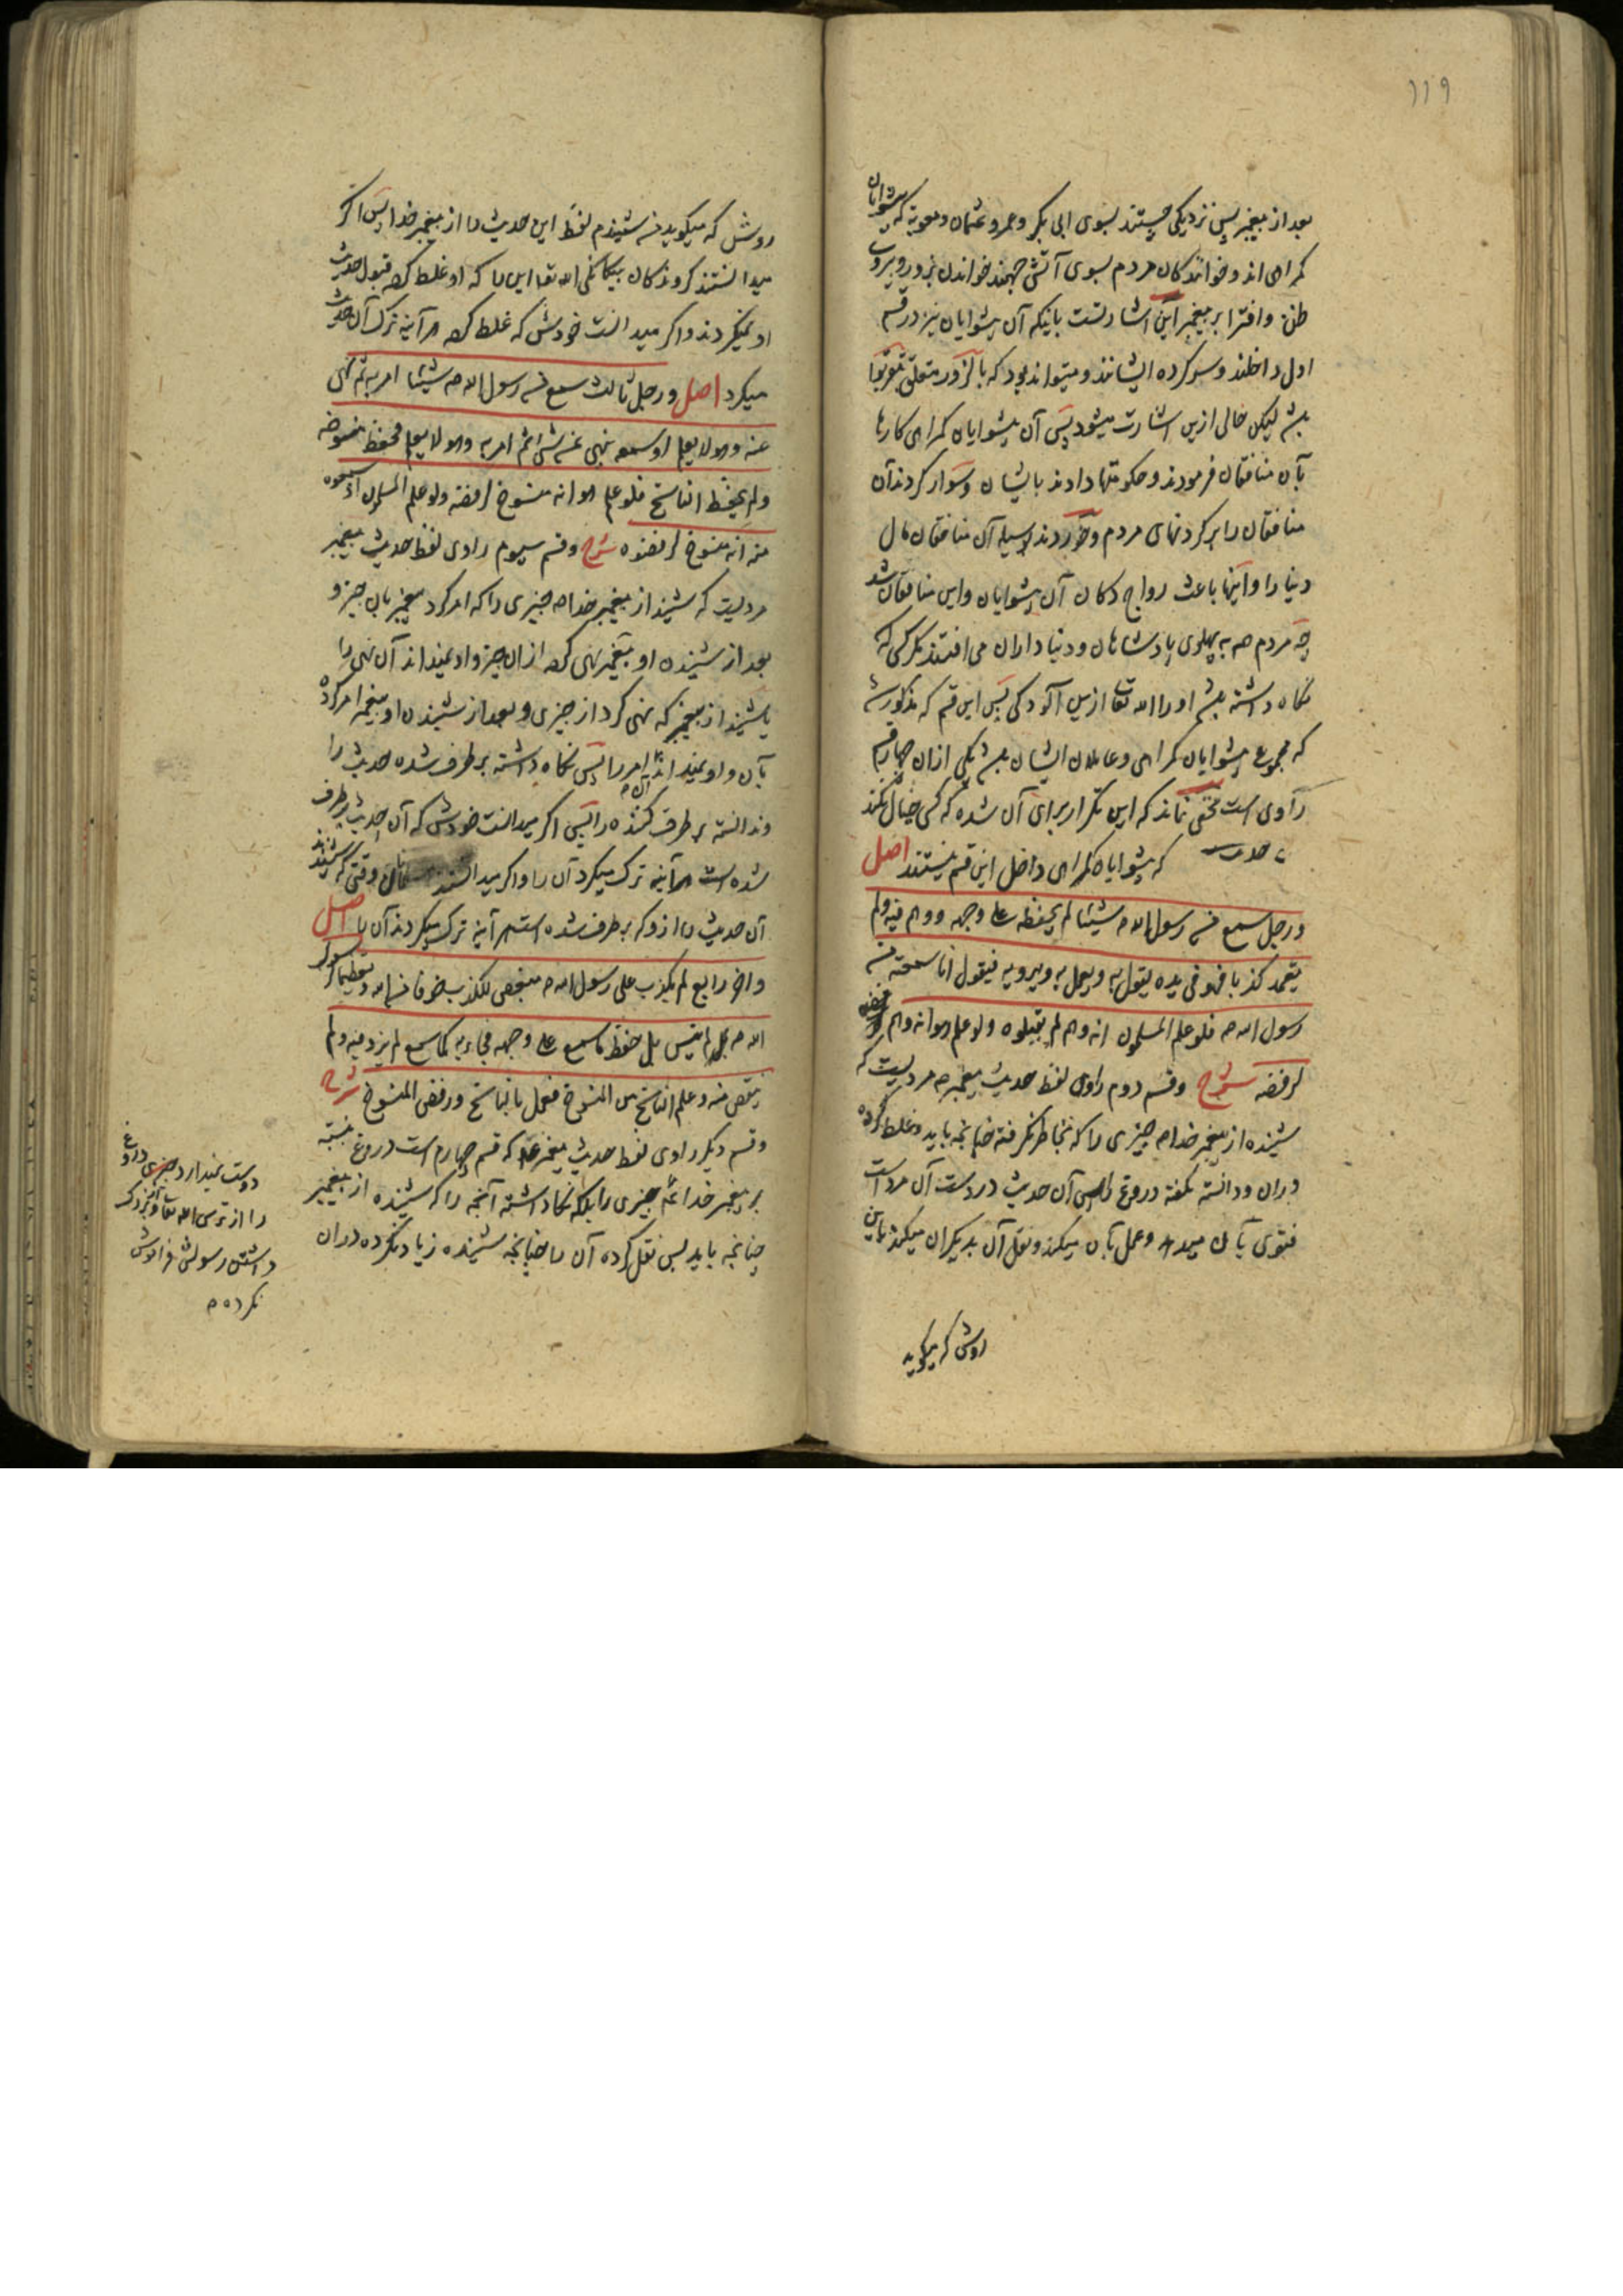 ١١٩
بعد از پیغمبر پس نزدیکی جستند بسوی ابی بکر و عمر و عثمان و معویة که پیشوایان
کمراهی اند و خوانندکان مردم بسوی آتش جهنم خواندن بزور و بروب
ظن و افترا بر پیغمبر این اشارتست باینکه آن پیشوایان نیز در قسم
اول داخلند و سر کرده ایشانند و میتواند بود که بالزور متعلق بتقربوا
باشد لیکن خالی ازین اشارت میشود پس آن پیشوایان کمراهی کارها
بآن منافقان فرمودند و حکومتها دادند بایشان و سوار کردند آن
منافقان را بر کردنهای مردم و خوردند بوسیله آن منافقان مال
دنیا را و اینها باعث رواج دکان آن پیشوایان و این منافقان شد
چه مردم همه به پهلوی پادشاهان و دنیا داران می افتند مکر کسی که
نکاه داشته باشد او را الله تعا ازین آلودکی پس این قسم که مذکور شد
که مجموع پیشوایان کمراهی و عاملان ایشان باشد یکی ازان چهار قسم
راوی است مخفی نماند که این تکرار برای آن شده که کسی خیال نکند
که پیشوایان کمراهی داخل این قسم نیستند اصل
و رجل سمع من رسول الله ص شیئا لم یحفظه علی وجهه و وهم فیه ولم
یتعمد کذبا فهو فی یده یقول به و یعمل به و یرویه فیقول انا سمعته من
رسول الله ص فلو علم المسلمون انه وهم لم یقبلوه و لو علم هو انه وهم
لرفضه شرح و قسم دوم راوی لفظ حدیث پیغمبر ص مردیست که
شنیده از پیغمبر خدا ص چیزی را که بخاطر نکرفته چنانچه باید و غلط کرده
دران و دانسته نکفته دروغ را پس آن حدیث در دست آن مرد است
فتوی بآن میدهد و عمل بآن میکند و نقل آن بدیکران میکند باین
روش که میکوید
روش که میکوید من شنیدم لفظ این حدیث را از پیغمبر خدا پس اکر
میدانستند کروندکان بیکانکی الله تعا این را که او غلط کرده قبول حدیث
او نمیکردند و اکر میدانست خودش که غلط کرده هر آینه ترک آن حدیث
میکرد اصل و رجل ثالث سمع من رسول الله ص شیئا امر به ثم نهی
عنه و هو لا یعلم او سمعه ینهی عن شی ثم امر به و هو لا یعلم فحفظ منسوخه
و لم یحفظ الناسخ فلو علم هو انه منسوخ لرفضه و لو علم المسلمون اذ سمعوه
منه انه منسوخ لرفضوه شرح و قسم سیوم راوی لفظ حدیث پیغمبر
مردیست که شنید از پیغمبر خدا ص چیزی را که امر کرد پیغمبر بآن چیز و
بعد از شنیدن او پیغمبر نهی کرده ازان چیز و او نمیداند آن نهی را
یا شنید از پیغمبر که نهی کرد از چیزی و بعد از شنیدن او پیغمبر امر کرده
بآن و او نمیداند آن امر را پس نکاه داشته بر طرف شده حدیث را
و ندانسته بر طرف کننده را پس اکر میدانست خودش که آن حدیث برطرف
شده است هر آینه ترک میکرد آن را و اکر میدانستند وقتی که شنیدند
آن حدیث را ازو که بر طرف شده است هر آینه ترک میکردند آن را اصل
و اخر رابع لم یکذب علی رسول الله ص مبغض للکذب خوفا من الله و تعظیما لرسول
الله ص لم ینس بل حفظ ما سمع علی وجهه فجاء به کما سمع لم یزد فیه و لم
ینقص منه و علم الناسخ من المنسوخ فعمل بالناسخ و رفض المنسوخ شرح
و قسم دیکر راوی لفظ حدیث پیغمبر که قسم چهارم است دروغ نبسته
بر پیغمبر خدا چیزی را بلکه نکاه داشته آنچه را که شنیده از پیغمبر
چنانچه باید پس نقل کرده آن را چنانچه شنیده زیاد نکرده دران
دوست نمیدارد دروغ
را از ترس الله تعا و بزرک
داشتن رسولش فراموش
نکرده